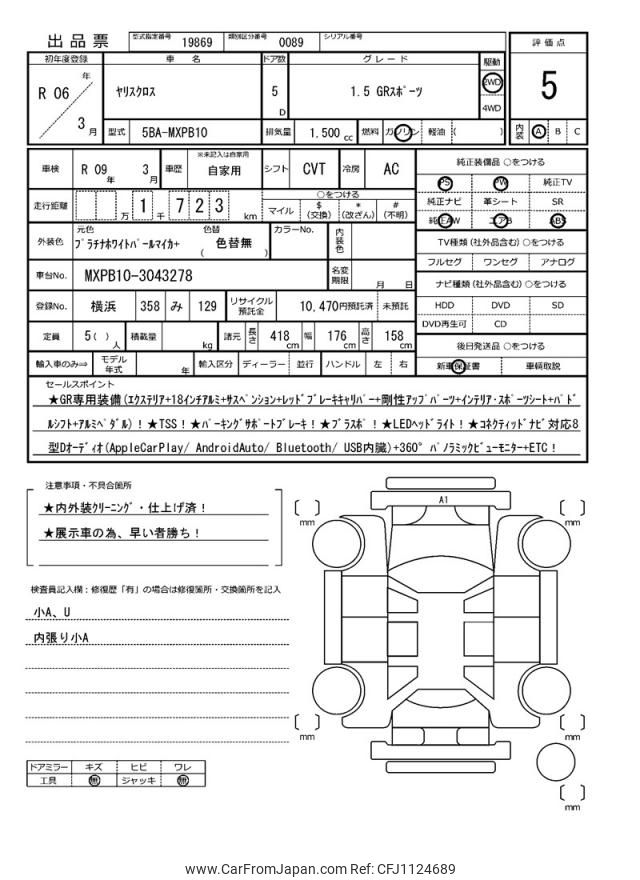 出品票 型式指定番号 19869 類別区分番号 0089 シリアル番号
初年度登録 車名 ドア数 グレード 駆動 評価点
R 06 年 3 月 ヤリスクロス 5 D 1.5 GRスポーツ 2WD 4WD 5
型式 5BA-MXPB10 排気量 1,500 cc 燃料 ガソリン 軽油 ( ) 内装 A B C
車検 R 09 年 3 月 車歴 ※未記入は自家用 自家用 シフト CVT 冷房 AC 純正装備品 ○をつける
PS PW 純正TV
走行距離 万 1 千 7 2 3 km ○をつける マイル $ (交換) * (改ざん) # (不明) 純正ナビ 革シート SR
純正AW エアB ABS
外装色 元色 プラチナホワイトパールマイカ+ 色替 ( 色替無 ) カラーNo. 内装色 TV種類 (社外品含む) ○をつける
フルセグ ワンセグ アナログ
車台No. MXPB10-3043278 名変期限 月 日 ナビ種類 (社外品含む) ○をつける
登録No. 横浜 358 み 129 リサイクル預託金 10,470円預託済 未預託 HDD DVD SD
DVD再生可 CD
定員 5( ) 人 積載量 kg 諸元 長さ 418 cm 幅 176 cm 高さ 158 cm 後日発送品 ○をつける
輸入車のみ⇒ モデル年式 年 輸入区分 ディーラー 並行 ハンドル 左 右 新車保証書 車輌取説
セールスポイント
★GR専用装備(エクステリア+18インチアルミ+サスペンション+レッドブレーキキャリパー+剛性アップパーツ+インテリア・スポーツシート+パド
ルシフト+アルミペダル)！★TSS！★パーキングサポートブレーキ！★プラスポ！★LEDヘッドライト！★コネクティッドナビ対応8
型Dオーディオ(AppleCarPlay/ AndroidAuto/ Bluetooth/ USB内臓)+360°パノラミックビューモニター+ETC！
注意事項・不具合箇所
★内外装クリーニング・仕上げ済！
★展示車の為、早い者勝ち！
検査員記入欄：修復歴「有」の場合は修復箇所・交換箇所を記入
小A、U
内張り小A
A1
mm
mm
mm
mm
mm
ドアミラー キズ ヒビ ワレ
工具 無 ジャッキ 無
www.CarFromJapan.com Ref: CFJ1124689